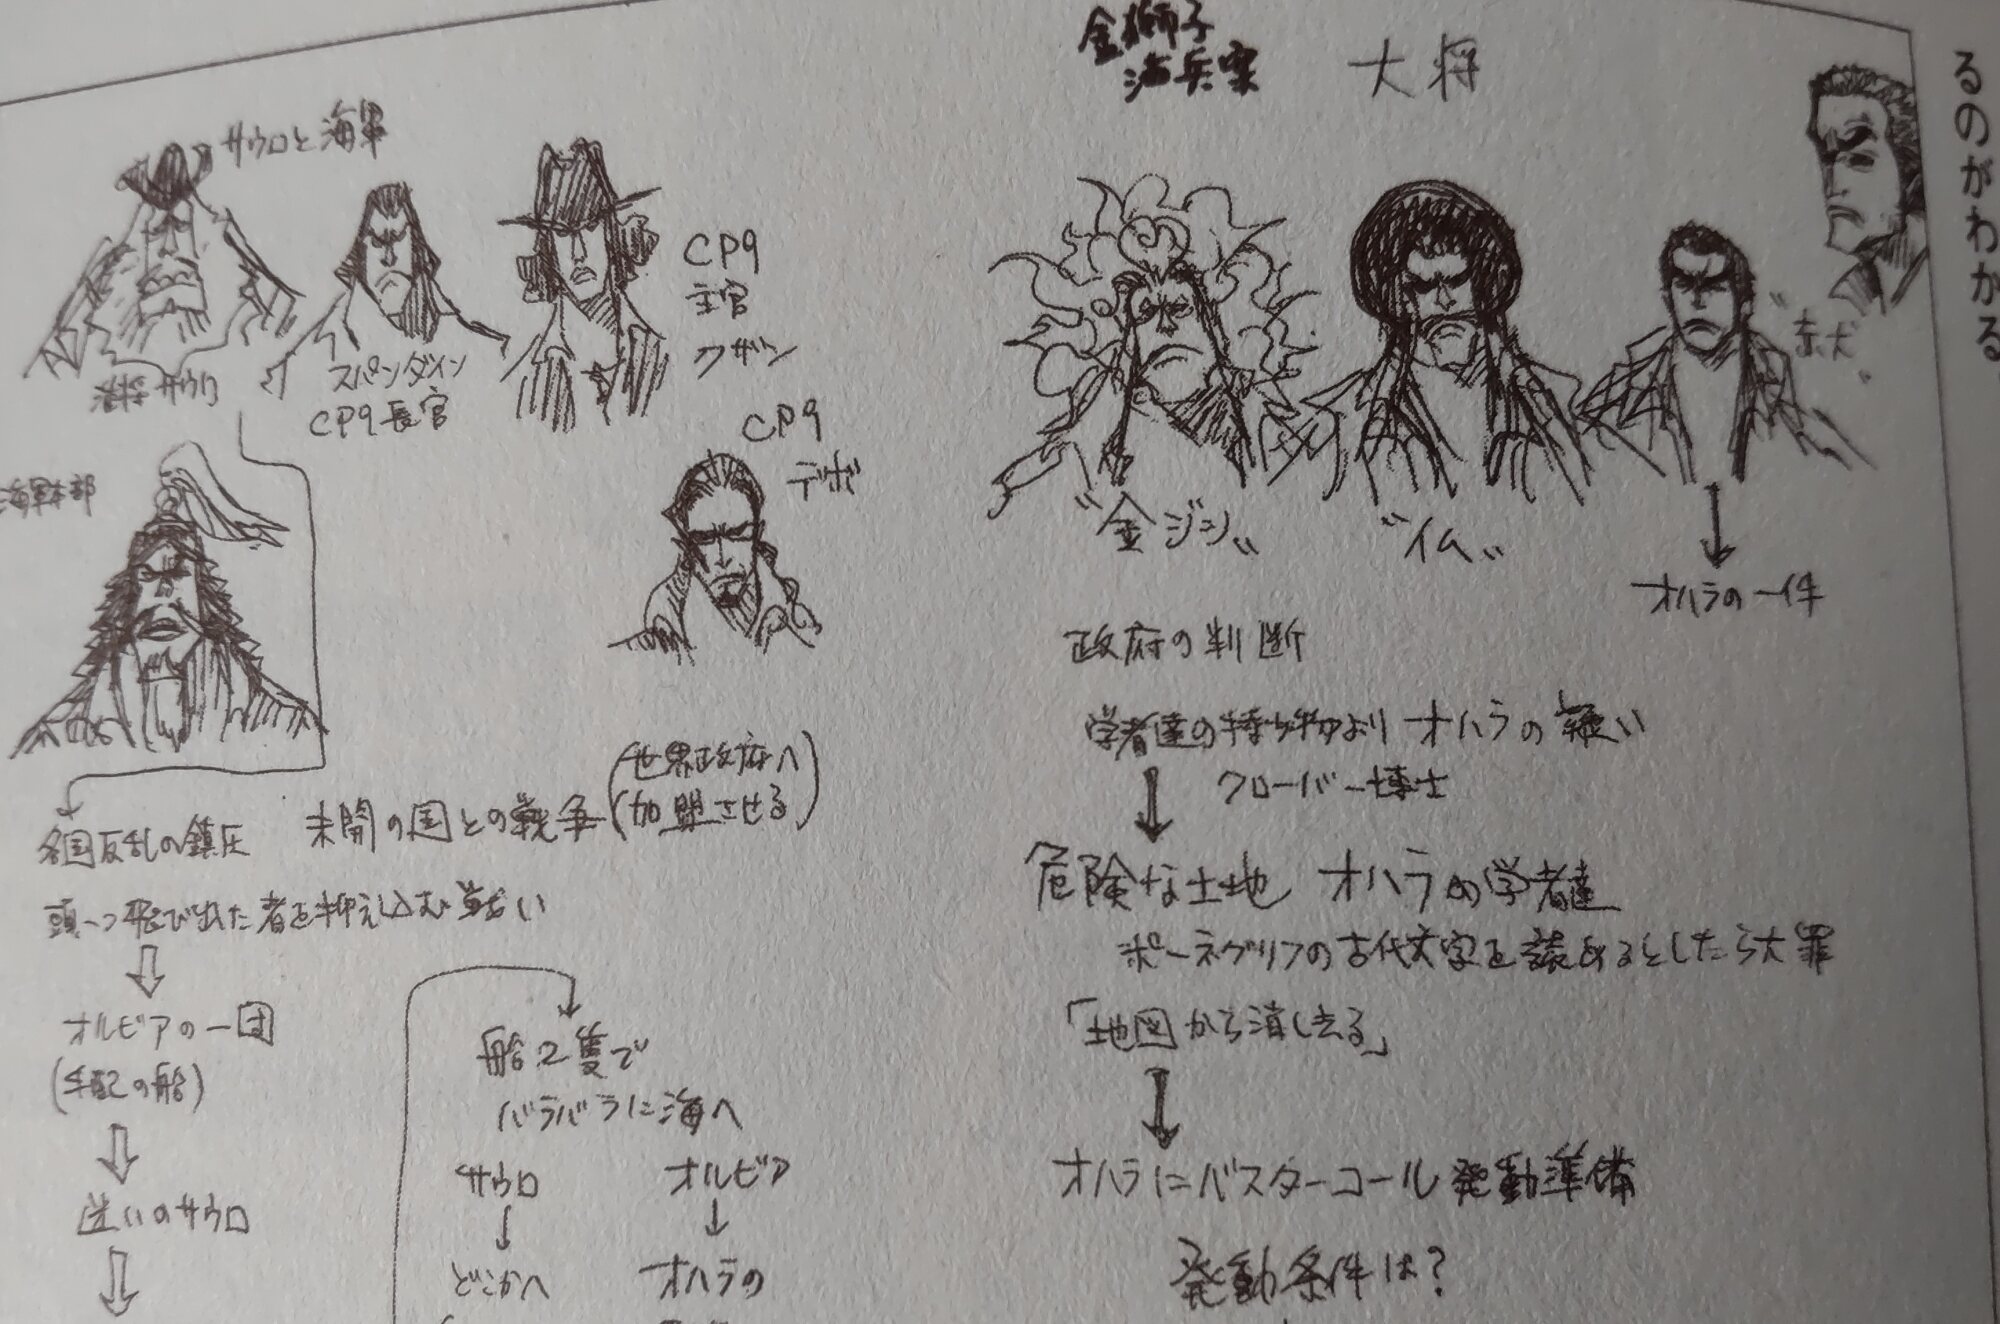 サウロと海軍
海将サウロ
スパンダイン
CP9長官
CP9
主官
クザン
CP9
デボ
海軍本部
各国反乱の鎮圧
未開の国との戦争
(世界政府へ
加盟させる)
頭一つ飛び出た者を抑え込む戦い
オルビアの一団
(手配の船)
迷いのサウロ
船2隻で
バラバラに海へ
サウロ
どこかへ
オルビア
オハラの
金獅子
海兵案
大将
"金ジシ"
"イム"
"赤犬"
オハラの一件
政府の判断
学者達の持ち物より オハラの疑い
クローバー博士
危険な土地 オハラの学者達
ポーネグリフの古代文字を読めるとしたら大罪
「地図から消し去る」
オハラにバスターコール発動準備
発動条件は?
るのがわかる